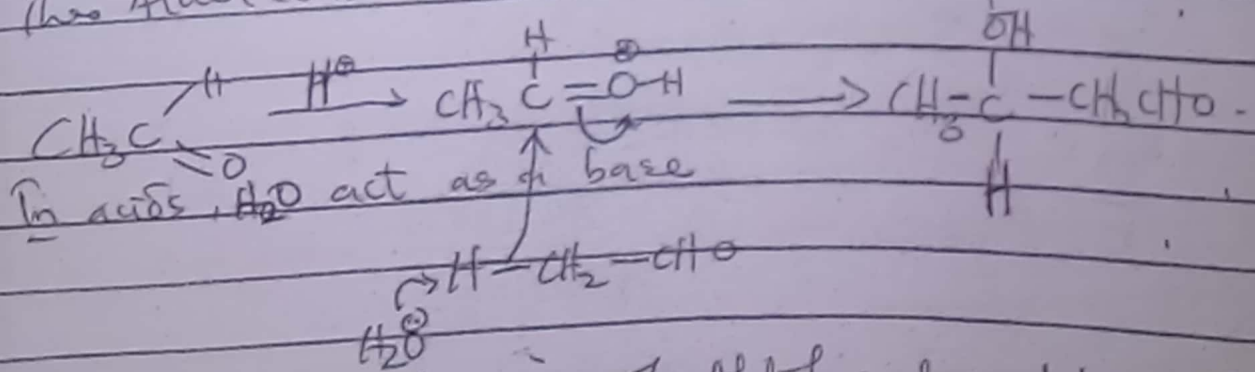 H OH
CH₃C H =O H⊕ → CH₃ C = O-H ⊕ → CH₃-C-CH₂CHO.
H
In acids, H₂O act as a base
H-CH₂-CHO
H₂O